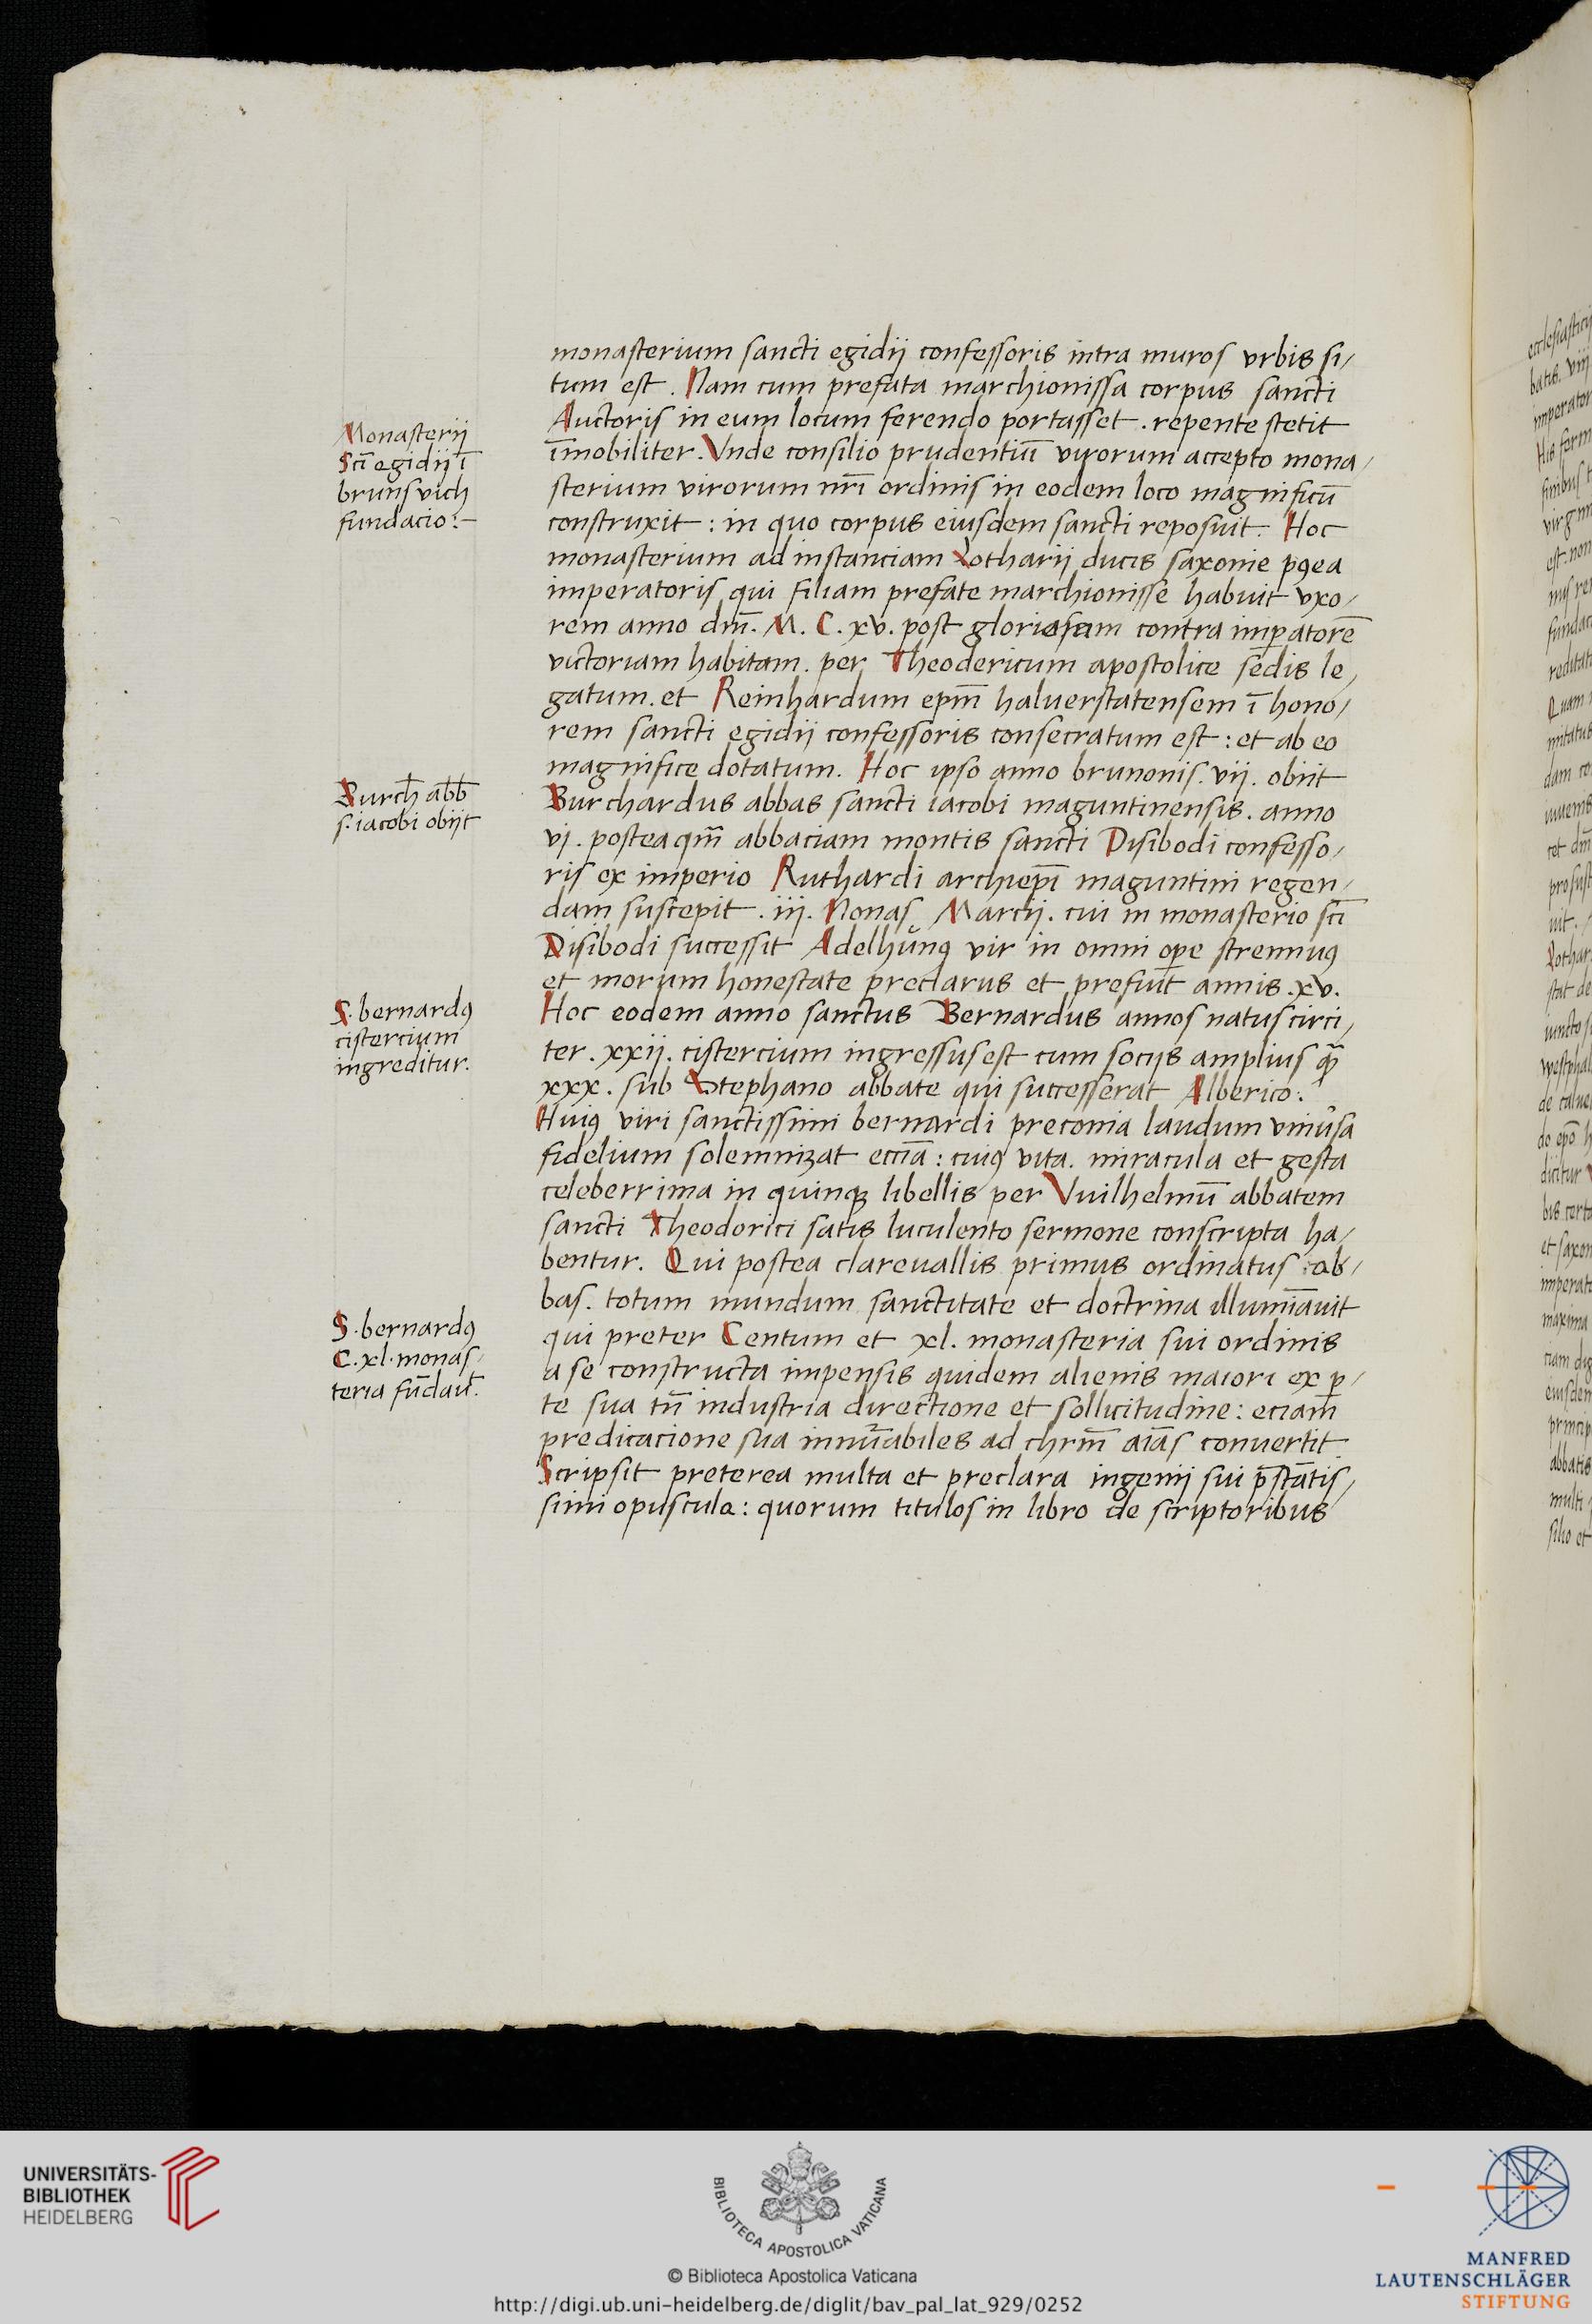 monasterium sancti egidij confessoris intra muros vrbis si/
tum est. Nam cum prefata marchionissa corpus sancti
Auctoris in eum locum ferendo portasset. repente stetit
īmobiliter. Vnde consilio prudentiū virorum accepto mona/
sterium virorum nr̄i ordinis in eodem loco magnificū
construxit: in quo corpus eiusdem sancti reposuit. Hoc
monasterium ad instanciam Lotharij ducis saxonie pꝯea
imperatoris qui filiam prefate marchionisse habuit vxo/
rem anno dm̄. M. C. xv. post gloriosam contra imꝑatorē
victoriam habitam. per Theodericum apostolice sedis le/
gatum. et Reinhardum epm̄ haluerstatensem ī hono/
rem sancti egidij confessoris consecratum est: et ab eo
magnifice dotatum. Hoc ipso anno brunonis. vij. obiit
Burchardus abbas sancti iacobi maguntinensis. anno
vj. postea qm̄ abbaciam montis sancti Disibodi confesso/
ris ex imperio Ruthardi archiepī maguntini regen/
dam suscepit. iij. Nonas Marcij. cui in monasterio scī
Disibodi successit Adelhūnꝯ vir in omni oꝑe strennuꝯ
et morum honestate preclarus et prefuit annis. xv.
Hoc eodem anno sanctus Bernardus annos natus circi/
ter. xxij. cistercium ingressus est cum socijs amplius qꝫ
xxx. sub Stephano abbate qui successerat Alberico.
Huiꝯ viri sanctissimi bernardi preconia laudum vniūsa
fidelium solemnizat eccīa: cuiꝯ vita. miracula et gesta
celeberrima in quinqꝫ libellis per Vuilhelmū abbatem
sancti Theodorici satis luculento sermone conscripta ha/
bentur. Qui postea clareuallis primus ordinatus ab/
bas. totum mundum sanctitate et doctrina illumīauit
qui preter Centum et xl. monasteria sui ordinis
a se constructa impensis quidem alienis maiori ex ꝑ/
te sua tn̄ industria directione et sollicitudine: eciam
predicacione sua innūabiles ad chrm̄ aīas conuertit
Scripsit preterea multa et preclara ingenij sui p̄stātis/
simi opuscula: quorum titulos in libro de scriptoribus
Monasterij
Scī egidij ī
brunsvich
fundacio:-
Burch̄ abb̄
s. iacobi obijt
S. bernardꝯ
cistercium
ingreditur.
S. bernardꝯ
C. xl. monas/
teria fūdaūt.
UNIVERSITÄTS-
BIBLIOTHEK
HEIDELBERG
BIBLIOTECA APOSTOLICA VATICANA
© Biblioteca Apostolica Vaticana
http://digi.ub.uni-heidelberg.de/diglit/bav_pal_lat_929/0252
MANFRED
LAUTENSCHLÄGER
STIFTUNG